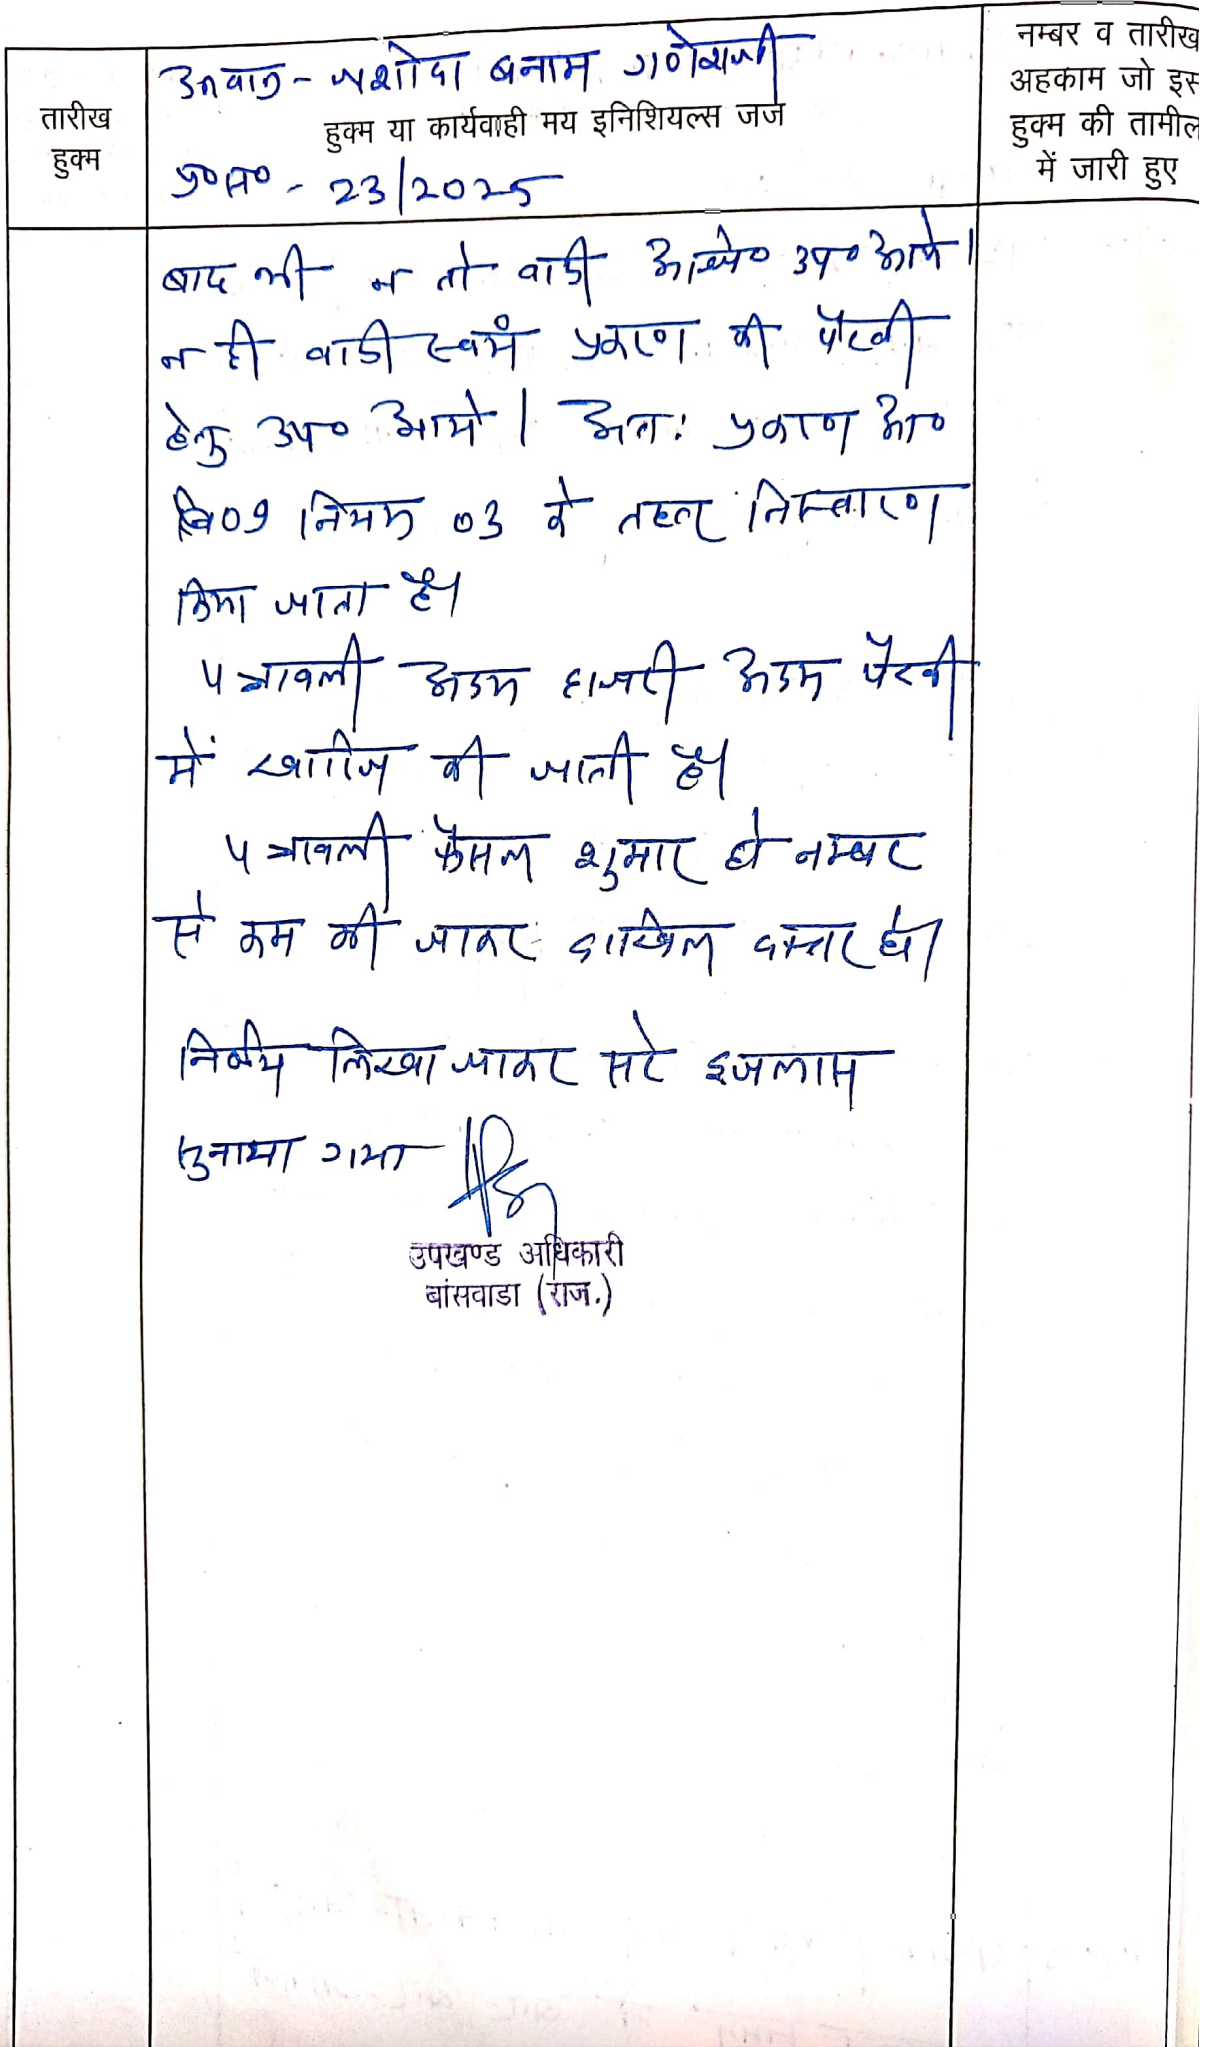 उनवान - जशोदा बनाम गणेशजी
तारीख हुक्म
हुक्म या कार्यवाही मय इनिशियल्स जज
नम्बर व तारीख
अहकाम जो इस
हुक्म की तामील
में जारी हुए
प्र०स० - 23/2025
बाद भी न तो वादी अधि० उप० आये।
न ही वादी स्वयं प्रकरण की पैरवी
हेतु उप० आये। अतः प्रकरण आ०
09 नियम 03 के तहत निस्तारण
किया जाता है।
पत्रावली अदम हाजरी अदम पैरवी
में खारिज की जाती है।
पत्रावली फैसल शुमार हो नम्बर
से कम की जाकर दाखिल दफ्तर हो।
निर्णय लिखा जाकर सरे इजलास
सुनाया गया
उपखण्ड अधिकारी
बांसवाडा (राज.)